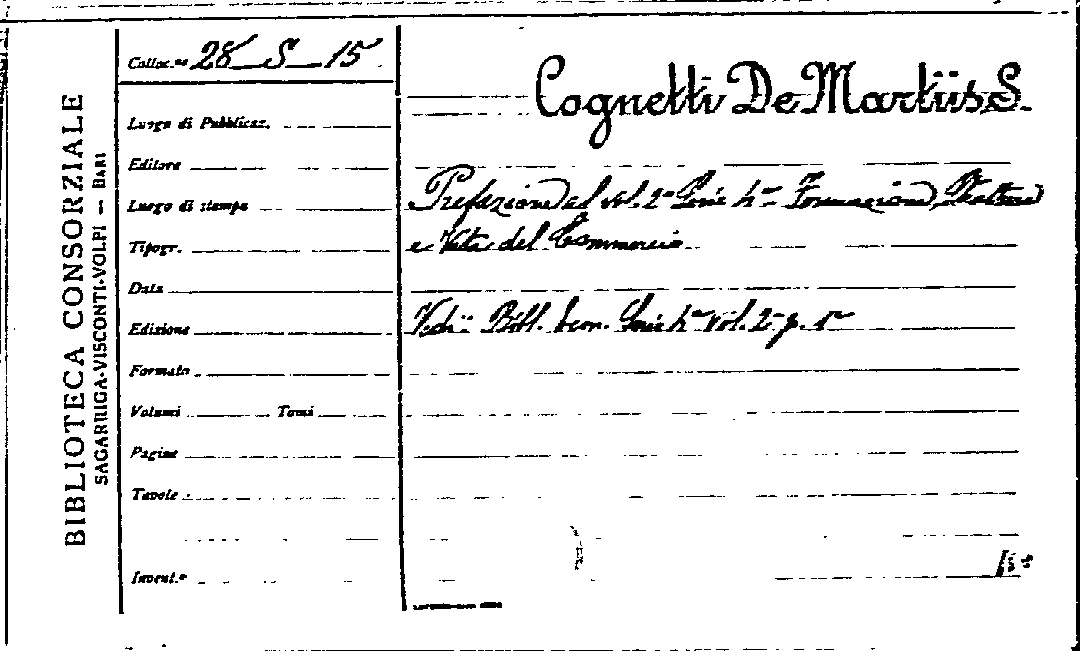 BIBLIOTECA CONSORZIALE
SAGARRIGA-VISCONTI-VOLPI — BARI
Colloc.ne 28 S 15
Luogo di Pubblicaz.
Editore
Luogo di stampa
Tipogr.
Data
Edizione
Formato
Volumi Tomi
Pagine
Tavole
Invent.o
Cognetti De Martiis S.
Prefazione al vol. 2° Serie 4a Formazione, Struttura
e Vita del Commercio
Vedi: Bibl. Econ. Serie 4a vol. 2° p. 1a